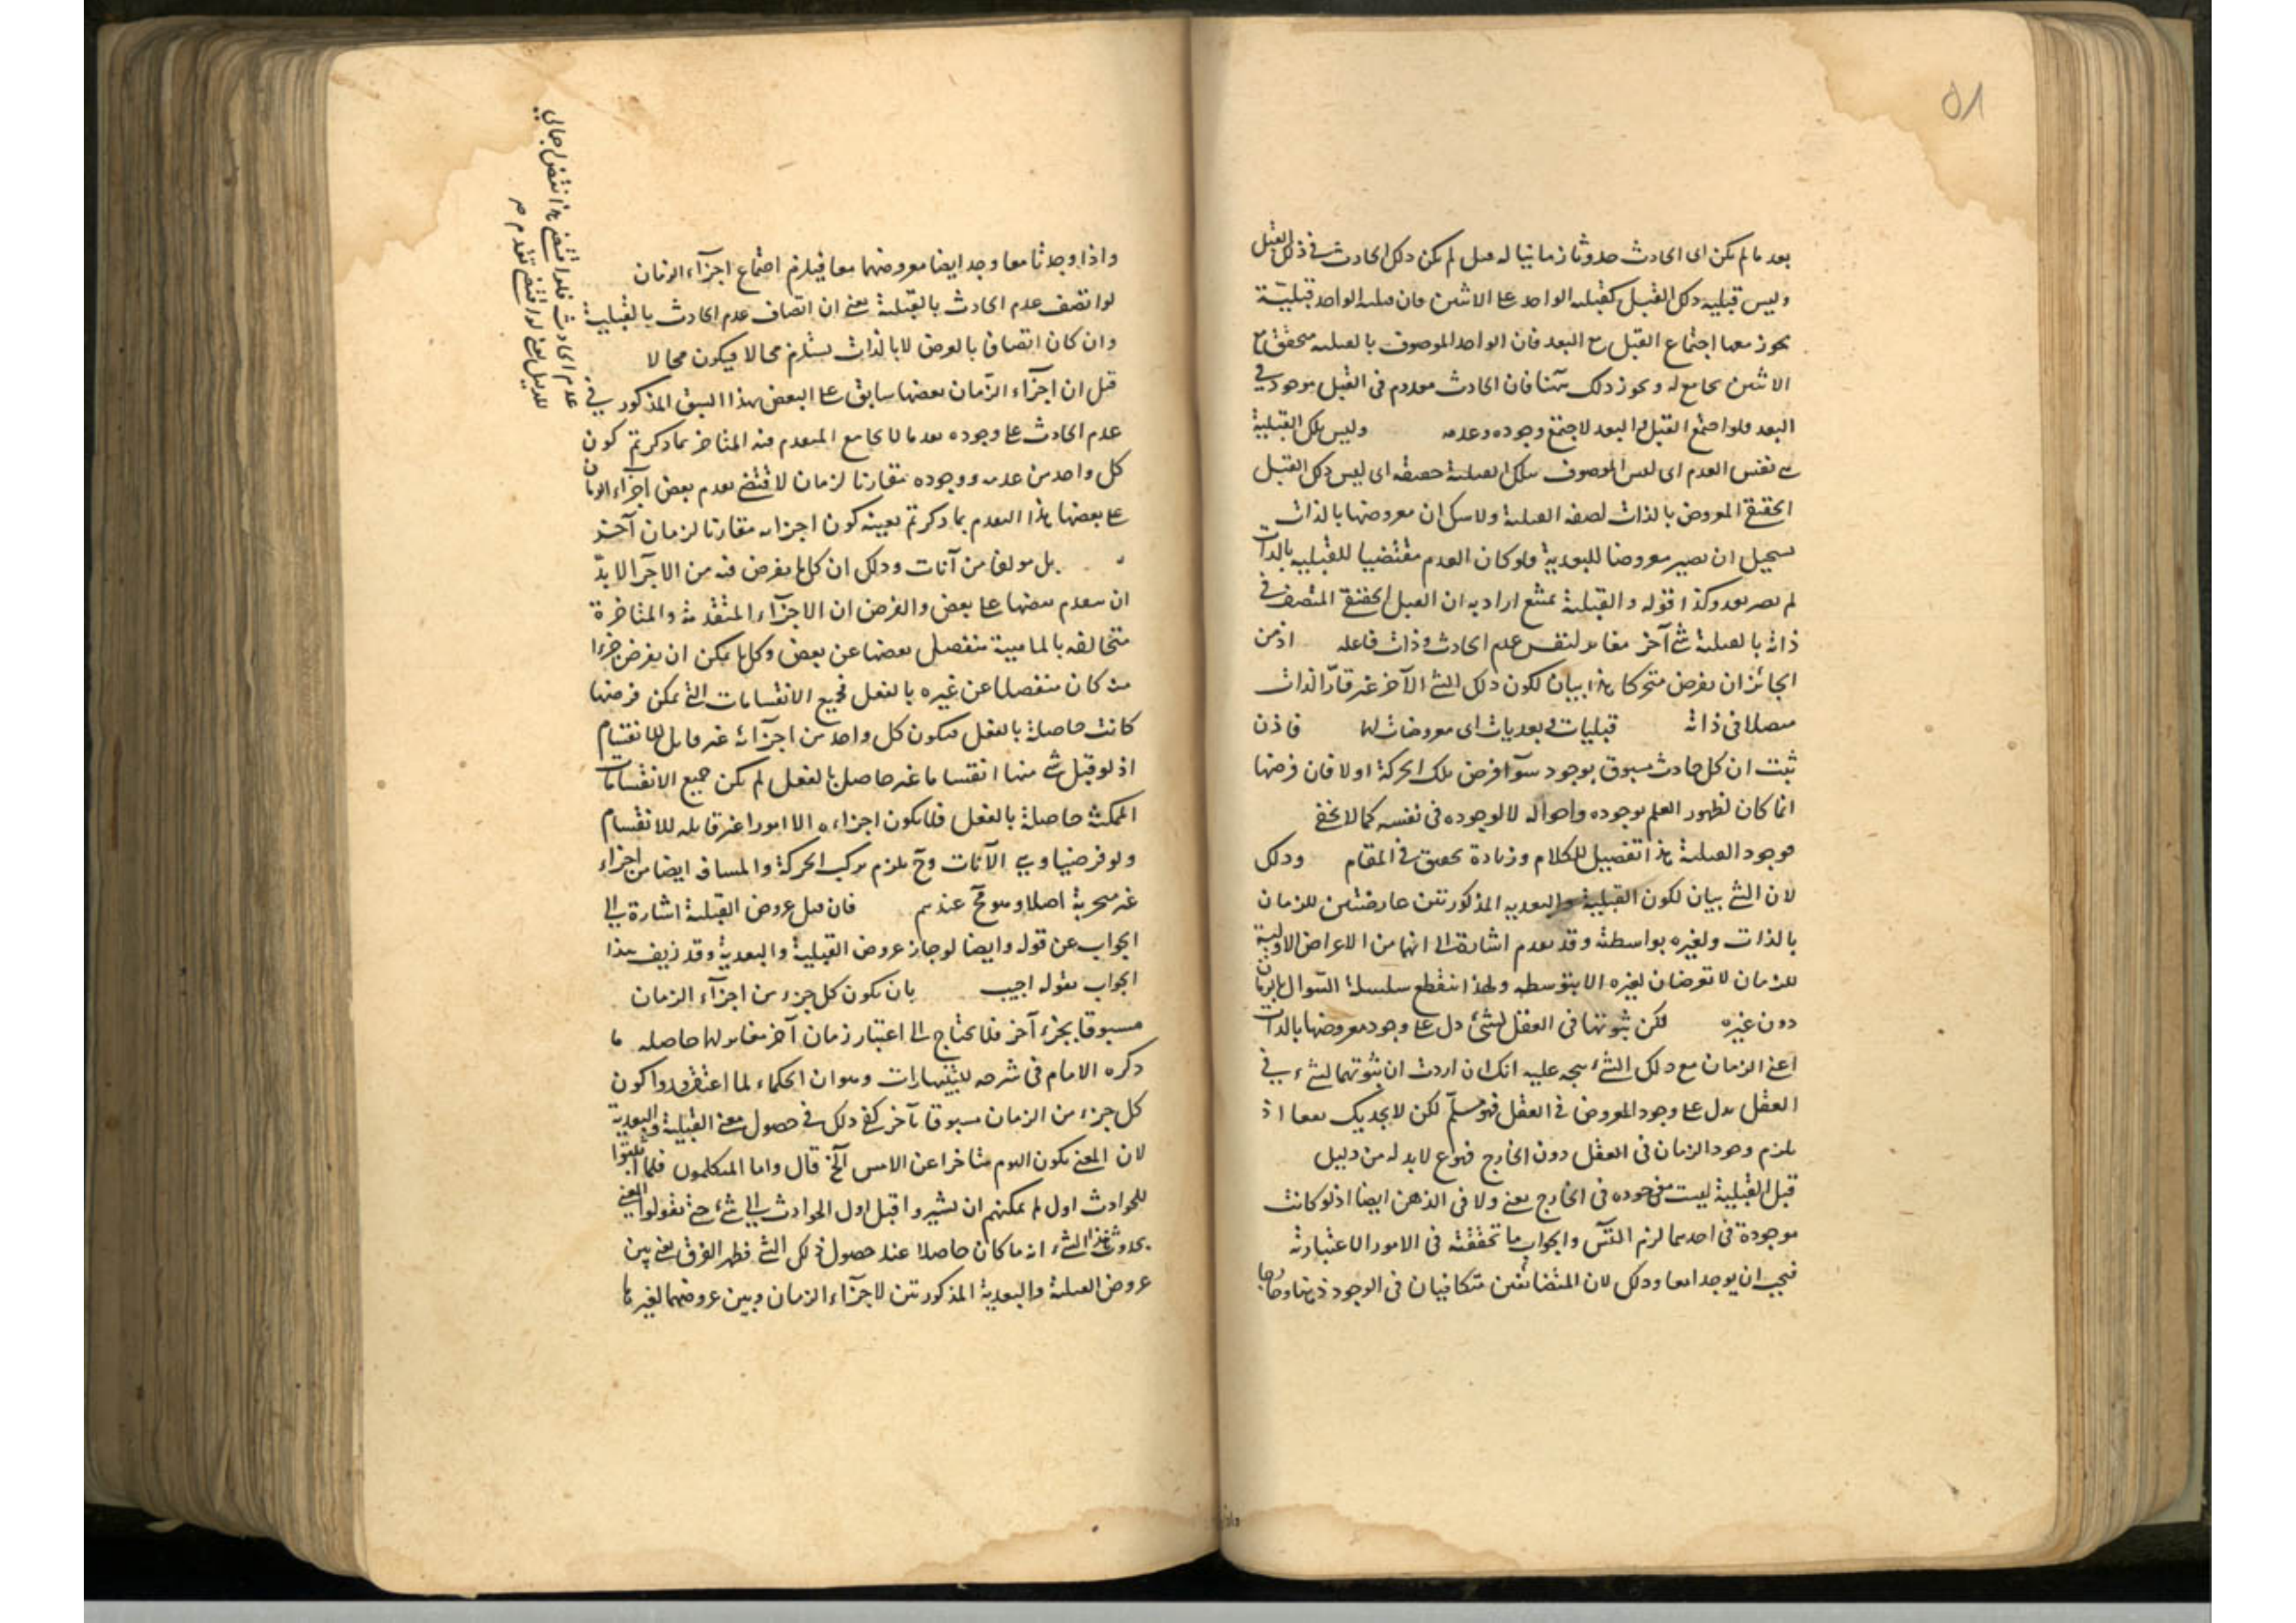 ٥٨
بعد ما لم يكن اى الحادث حدوثا زمانيا له قبل لم يكن ذلك الحادث فى ذلك القبل
وليس قبلية ذلك القبل كقبلية الواحد على الاثنين فان قبلية الواحد قبلية
يجوز معها اجتماع القبل مع البعد فان الواحد الموصوف بالقبلية متحقق مع
الاثنين مجامع له ويجوز ذلك ههنا فان الحادث معدوم فى القبل موجود فى
البعد فلو اجتمع القبل والبعد لاجتمع وجوده وعدمه وليس تلك القبلية
هى نفس العدم اى ليس الموصوف بتلك القبلية حقيقة اى ليس ذلك القبل
الحقيقى المعروض بالذات لصفة القبلية ولا شك ان معروضها بالذات
يستحيل ان يصير معروضا للبعدية ولو كان العدم مقتضيا للقبلية بالذات
لم يصر بعد وكذا قوله والقبلية يمتنع اراد به ان القبل الحقيقى المتصف فى
ذاته بالقبلية شئ آخر مغاير لنفس عدم الحادث وذات فاعله اذ من
الجائز ان يفرض متحركا هذا بيان لكون ذلك الشئ الآخر غير قار الذات
متصلا فى ذاته قبليات وبعديات اى معروضات لها فاذن
ثبت ان كل حادث مسبوق بوجود سواء فرض تلك الحركة اولا فان فرضها
انما كان لظهور العلم بوجوده واحواله لا لوجوده فى نفسه كما لا يخفى
فوجود القبلية هذا تفصيل للكلام وزيادة تحقيق فى المقام وذلك
لان الشئ بيان لكون القبلية والبعدية المذكورتين عارضتين للزمان
بالذات ولغيره بواسطته وقد تقدم اشارة الى انهما من الاعراض الاولية
للزمان لا تعرضان لغيره الا بتوسطه ولهذا ينقطع سلسلة السؤال بالزمان
دون غيره لكن ثبوتها فى العقل لشئ دل على وجود معروضها بالذات
اعنى الزمان مع ذلك الشئ يتجه عليه انك ان اردت ان ثبوتهما لشئ فى
العقل يدل على وجود المعروض فى العقل فهو مسلم لكن لا يجديك نفعا اذ
يلزم وجود الزمان فى العقل دون الخارج فهو ع لابد له من دليل
قبل القبلية ليست موجودة فى الخارج يعنى ولا فى الذهن ايضا اذ لو كانت
موجودة فى احدهما لزم التس والجواب ما تحققته فى الامور الاعتبارية
فيجب ان يوجدا معا وذلك لان المتضائفين متكافيان فى الوجود ذهنا وخارجا
واذا
واذا وجدتا معا وجد ايضا معروضهما معا فيلزم اجتماع اجزاء الزمان
لو اتصف عدم الحادث بالقبلية يعنى ان اتصاف عدم الحادث بالقبلية
وان كان اتصافا بالعرض لا بالذات يستلزم محالا فيكون محالا
قبل ان اجزاء الزمان بعضها سابق على البعض بهذا السبق المذكور فى
عدم الحادث على وجوده بعد ما لا يجامع المتقدم فيه المتاخر بما ذكرتم كون
كل واحد من عدمه ووجوده مقارنا لزمان لاقتضى تقدم بعض اجزاء الزمان
على بعضها هذا التقدم بما ذكرتم بعينه كون اجزائه مقارنا لزمان آخر
بل مؤلفا من آنات وذلك ان كل ما يفرض فيه من الاجزاء لا بد
ان يتقدم بعضها على بعض والفرض ان الاجزاء المتقدمة والمتاخرة
متخالفة بالماهية منفصل بعضها عن بعض وكل ما يمكن ان يفرض جزءا
منه كان منفصلا عن غيره بالفعل فجميع الانقسامات التى يمكن فرضها
كانت حاصلة بالفعل فيكون كل واحد من اجزائه غير قابل للانقسام
اذ لو قبل شئ منها انقساما غير حاصل بالفعل لم يكن جميع الانقسامات
الممكنة حاصلة بالفعل فلا يكون اجزاءه الا امورا غير قابلة للانقسام
ولو فرضيا وهى الآنات وح يلزم تركب الحركة والمسافة ايضا من اجزاء
غير متجزية اصلا وهو مح عندهم فان قبل عروض القبلية اشارة الى
الجواب عن قوله وايضا لو جاز عروض القبلية والبعدية وقد زيف هذا
الجواب بقوله اجيب بان يكون كل جزء من اجزاء الزمان
مسبوقا بجزء آخر فلا يحتاج الى اعتبار زمان آخر مغاير لها حاصله ما
ذكره الامام فى شرحه للاشارات وهو ان الحكماء لما اعتقدوا كون
كل جزء من الزمان مسبوقا بآخر كفى ذلك فى حصول معنى القبلية والبعدية
لان المعنى بكون اليوم متاخرا عن الامس الخ قال واما المتكلمون فلما اثبتوا
للحوادث اول لم يمكنهم ان يشيروا قبل اول الحوادث الى شئ حتى يقولوا المعنى
بحدوث هذا الشئ انه ما كان حاصلا عند حصول ذلك الشئ فظهر الفرق يعنى بين
عروض القبلية والبعدية المذكورتين لاجزاء الزمان وبين عروضهما لغيرها
عدم الحادث فلو اقتضى هذا نقض اجمالى
للدليل يعنى لو اقتضى تقدم م